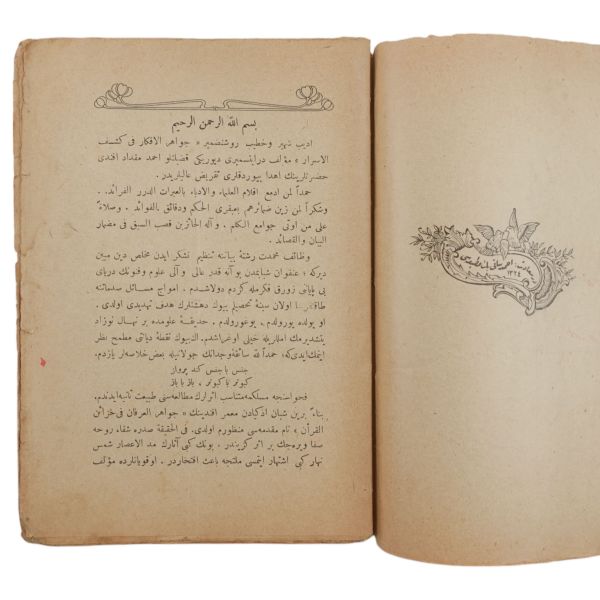 بسم الله الرحمن الرحيم
اديب شهير وخطيب روشنضمير « جواهر الافكار فى كشف
الاسرار » مؤلف درايتسميرى ديوريكى قضبانلو احمد مقداد افندى
حضرتلرينك اهدا بيوردقلرى تقريض عاليلريدر.
حمداً لمن ادمع اقلام العلماء والادباء بالعبرات الدرر الفرائد. .
وشكراً لمن زين ضمائرهم بعبقرى الحكم ودقائق بالفوائد . وصلاةً
على من اوتى جوامع الكلم . وآله الحائزين قصب السبق فى مضمار
البيان والقصائد .
وظائف محمدت رشتهٔ بياننه تنظيم تشكر ايدن مخلص دين مبين
ديركه ؛ عنفوان شبابمدن بو آنه قدر عالى و آلى علوم وفنونك درياى
بى پايانى زورق فكرمله كزدم دولاشدم . امواج مسائل صدماتنه
اولان سينهٔ تحصيلم بيوك دهشتلرك هدف تهديدى اولدى .
او يولده يورولدم . يوغورولدم . حديقهٔ علومده بر نهال نوزاد
يتشديرمك امللريله خيلى اوغراشدم. الك بيوك نقطهٔ ديانتى مطمح نظر
ايتمك ايدى كه؛ حمداً لله سائقهٔ وجدانك جولانيله بعض خلاصه‌لر يازدم.
جنس با جنس كند پرواز
كبوتر با كبوتر ، باز با باز
فحواسنجه مسلكمه متناسب اثرلرك مطالعه‌سى طبيعت ثانيه ايدندم.
بناءً برين شبان اذكيادن معمر افندينك « جواهر العرفان فى خزائن
القرآن » نام مقدمه‌سى منظورم اولدى. فى الحقيقة صدره شفاء روحه
صفا ويره‌جك بر اثر كزيندر . بونك كبى آثارك مد الاعصار شمس
نهار كبى اشتهار ايتمسى ملتجه باعث افتخاردر . اوقويانلرده مؤلف
١٣٢٤